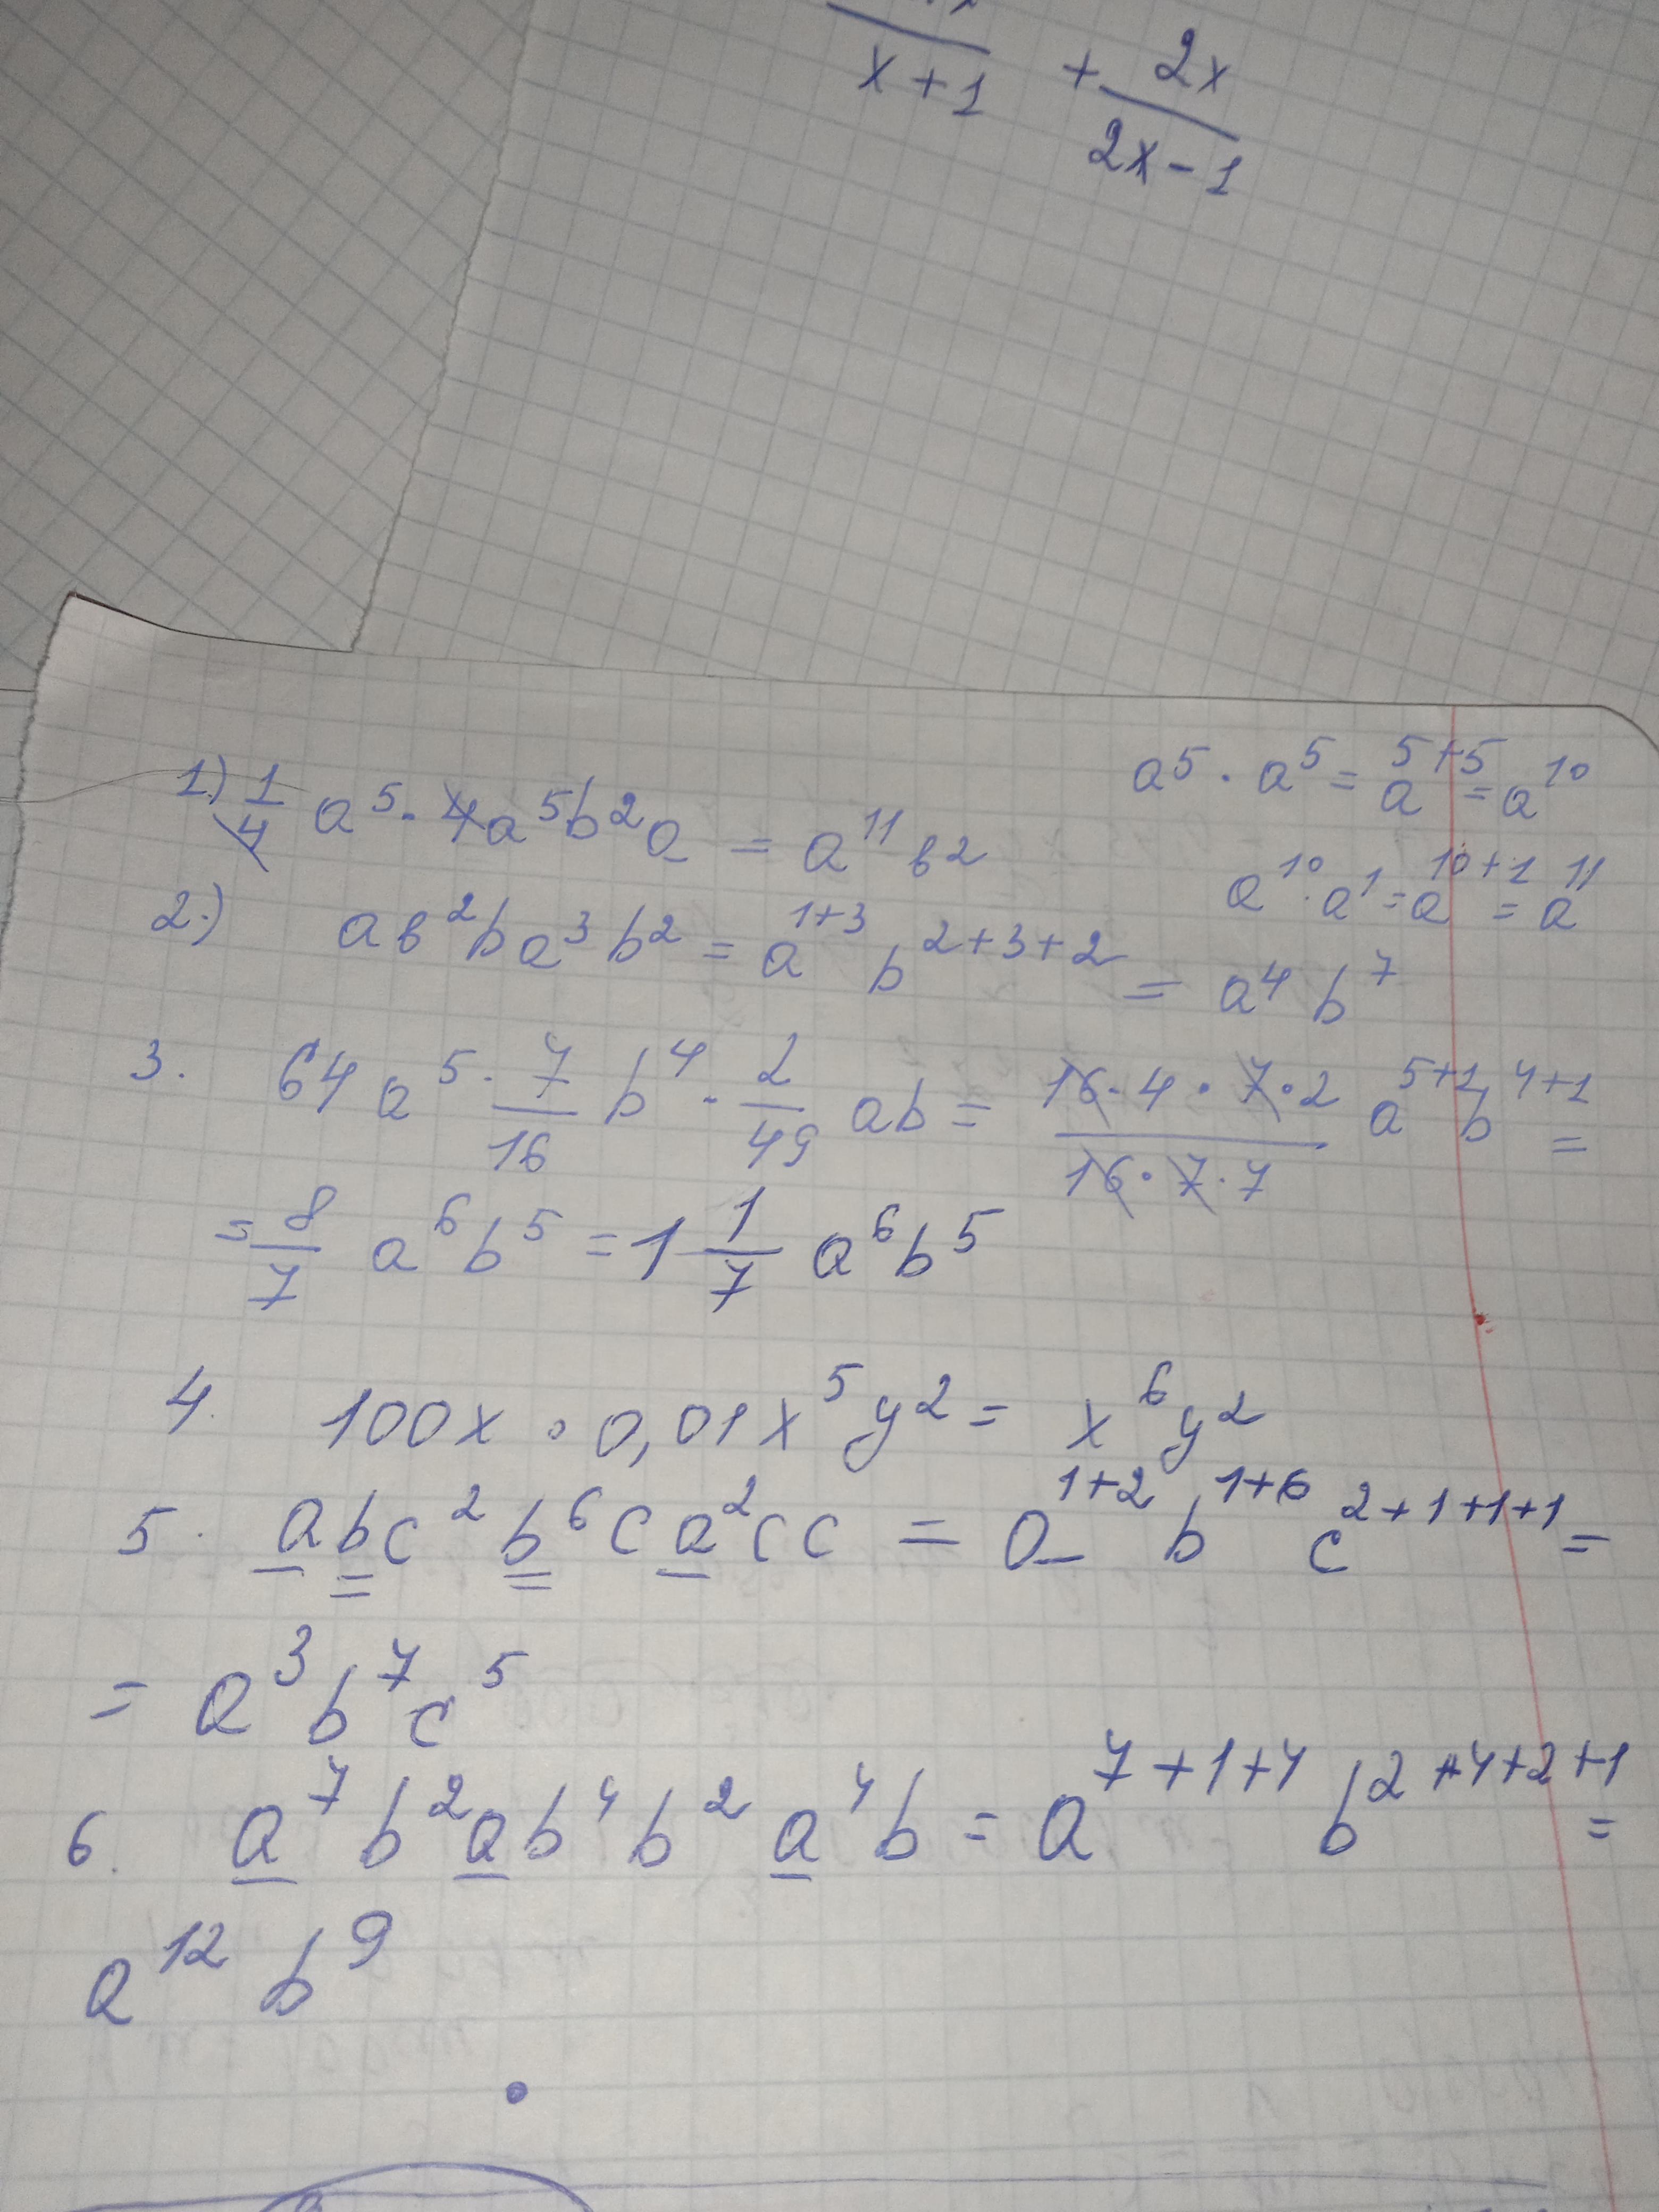 x+1 + 2x/2x-1
1.) 1/4 a⁵ · 4a⁵b²a = a¹¹в²
a⁵ · a⁵ = a⁵⁺⁵ = a¹⁰
a¹⁰ · a¹ = a¹⁰⁺¹ = a¹¹
2.) aв²ba³b² = a¹⁺³ b²⁺³⁺² = a⁴ b⁷
3. 64a⁵ · 7/16 b⁴ · 2/49 ab = 16·4·7·2/16·7·7 a⁵⁺¹b⁴⁺¹ =
= 8/7 a⁶b⁵ = 1 1/7 a⁶b⁵
4. 100x · 0,01x⁵y² = x⁶y²
5. abc²b⁶ca²cc = a¹⁺² b¹⁺⁶ c²⁺¹⁺¹⁺¹ =
= a³b⁷c⁵
6. a⁷b²ab⁴b²a⁴b = a⁷⁺¹⁺⁴ b²⁺⁴⁺²⁺¹ =
a¹² b⁹